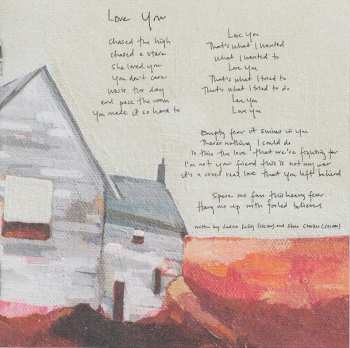 Love You
Chased the high
chased a
She loved you
You don't care
Waste the day
and pace the room
You made it so hard to
Love You
That's what I wanted
what I wanted to
Love You
That's what I tried to
That's what I tried to do
Love You
Love You
Empty fear it shines in you
There's nothing I could do
Is this the love that we're fighting for
I'm not your friend this is not my war
it's a cruel love that you left behind
Spare me from this heavy fear
Hang me up with foiled believers
written by and